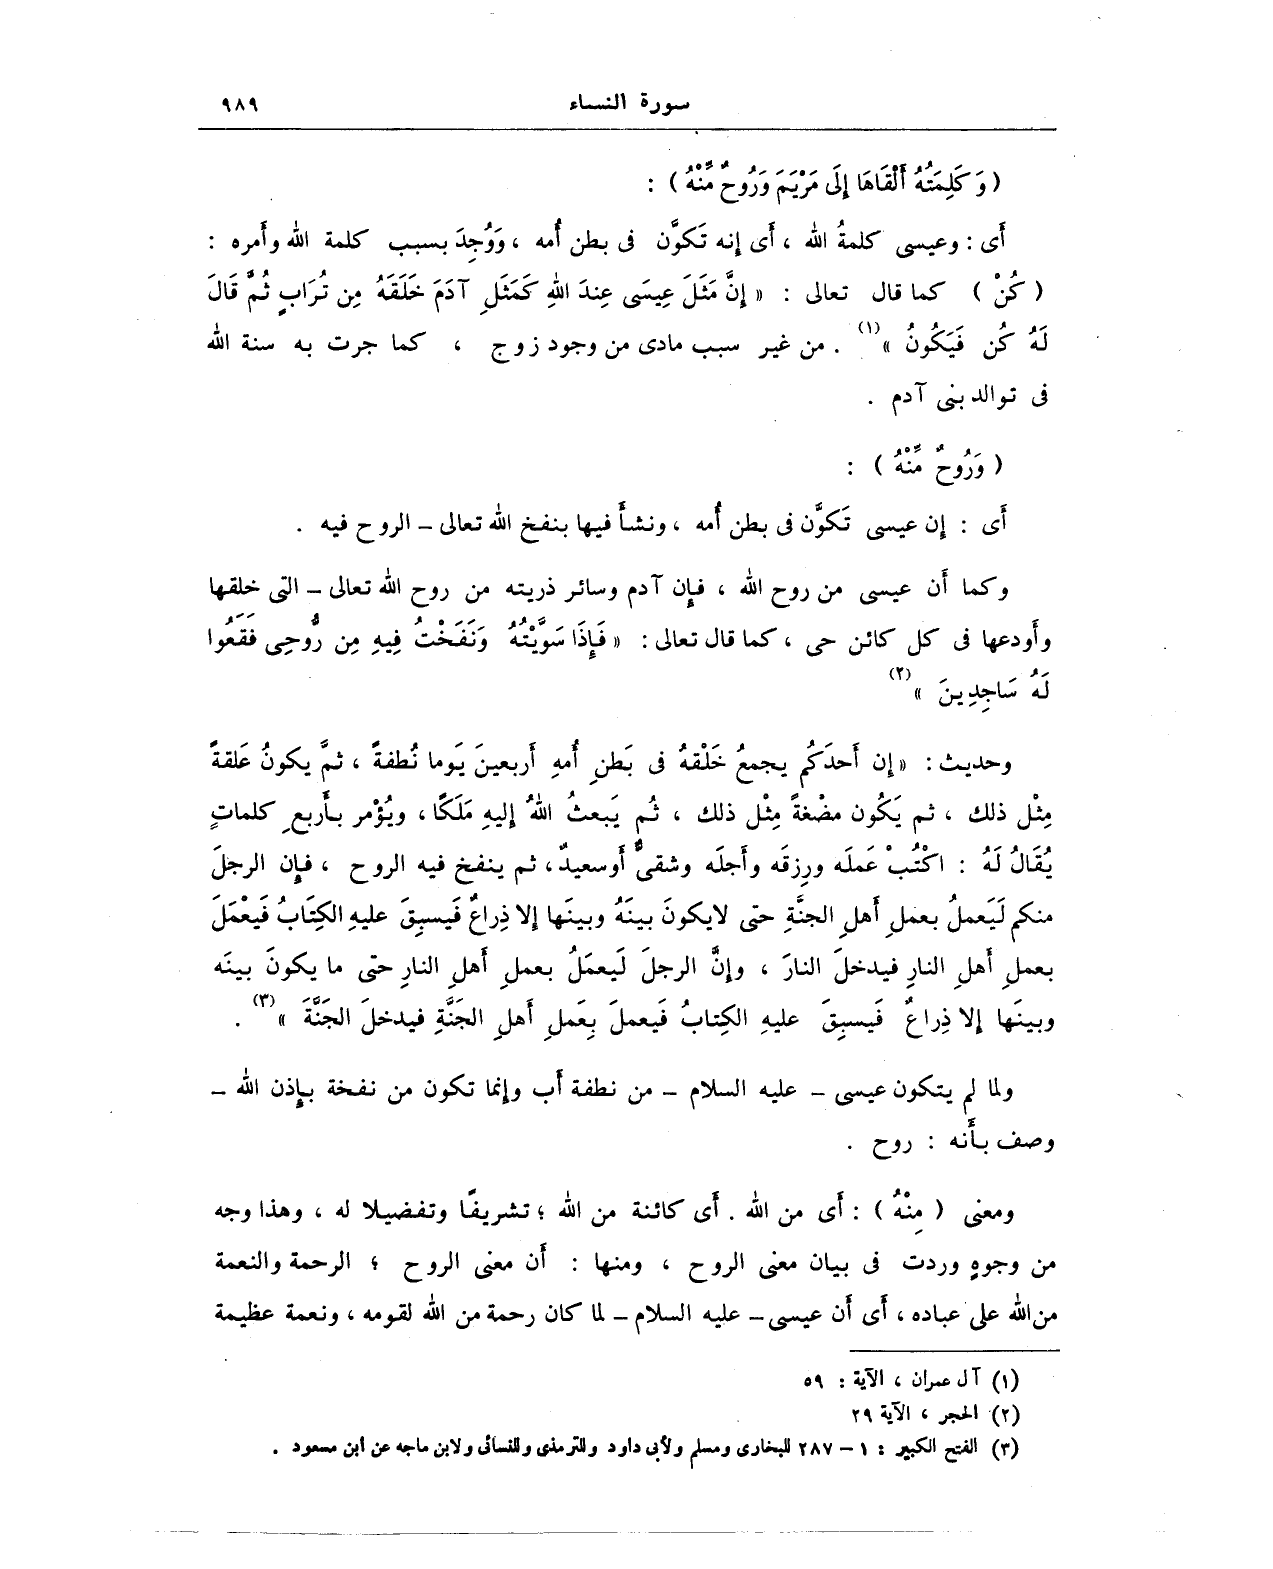 سورة النساء ٩٨٩
( وَكَلِمَتُهُ أَلْقَاهَا إِلَى مَرْيَمَ وَرُوحٌ مِّنْهُ ) :
أَى : وعيسى كلمةُ الله ، أَى إِنه تَكوَّن فى بطن أُمه ، وَوُجِدَ بسبب كلمة الله وأَمره :
( كُنْ ) كما قال تعالى : « إِنَّ مَثَلَ عِيسَى عِندَ اللهِ كَمَثَلِ آدَمَ خَلَقَهُ مِن تُرَابٍ ثُمَّ قَالَ
لَهُ كُن فَيَكُونُ »(١) . من غير سبب مادى من وجود زوج ، كما جرت به سنة الله
فى توالد بنى آدم .
( وَرُوحٌ مِّنْهُ ) :
أَى : إِن عيسى تَكوَّن فى بطن أُمه ، ونشأَ فيها بنفخ الله تعالى – الروح فيه .
وكما أَن عيسى من روح الله ، فإِن آدم وسائر ذريته من روح الله تعالى – التى خلقها
وأَودعها فى كل كائن حى ، كما قال تعالى : « فَإِذَا سَوَّيْتُهُ وَنَفَخْتُ فِيهِ مِن رُّوحِى فَقَعُوا
لَهُ سَاجِدِينَ »(٢)
وحديث : « إِن أَحدَكُم يجمعُ خَلْقهُ فى بَطنِ أُمهِ أَربعينَ يَوما نُطفةً ، ثمَّ يكونُ عَلقةً
مِثْل ذلك ، ثم يَكُون مضْغةً مِثْل ذلك ، ثُم يَبعثُ اللهُ إِليهِ مَلَكًا ، ويُؤْمر بأَربعِ كلماتٍ
يُقَالُ لَهُ : اكْتُبْ عَملَه ورِزقَه وأَجلَه وشقىٌّ أَوسعيدٌ ، ثم ينفخ فيه الروح ، فإِن الرجلَ
منكم لَيَعملُ بعملِ أَهلِ الجنَّةِ حتى لايكونَ بينَهُ وبينَها إِلا ذِراعٌ فَيسبِقَ عليهِ الكِتَابُ فَيَعْمَلَ
بعملِ أَهلِ النارِ فيدخلَ النارَ ، وإِنَّ الرجلَ لَيعمَلُ بعملِ أَهلِ النارِ حتى ما يكونَ بينَه
وبينَها إِلا ذِراعٌ فَيسبِقَ عليهِ الكِتابُ فَيعملَ بِعَملِ أَهلِ الجَنَّةِ فيدخلَ الجَنَّةَ »(٣) .
ولما لم يتكون عيسى – عليه السلام – من نطفة أَب وإِنما تكون من نفخة بإِذن الله –
وصف بأَنه : روح .
ومعنى ( مِنْهُ ) : أَى من الله . أَى كائنة من الله ؛ تشريفًا وتفضيلا له ، وهذا وجه
من وجوهٍ وردت فى بيان معنى الروح ، ومنها : أَن معنى الروح ؛ الرحمة والنعمة
من الله على عباده ، أَى أَن عيسى – عليه السلام – لما كان رحمة من الله لقومه ، ونعمة عظيمة
(١) آل عمران ، الآية : ٥٩
(٢) الحجر ، الآية ٢٩
(٣) الفتح الكبير : ١ – ٢٨٧ للبخارى ومسلم ولأبى داود وللترمذى وللنسائى ولابن ماجه عن ابن مسعود .